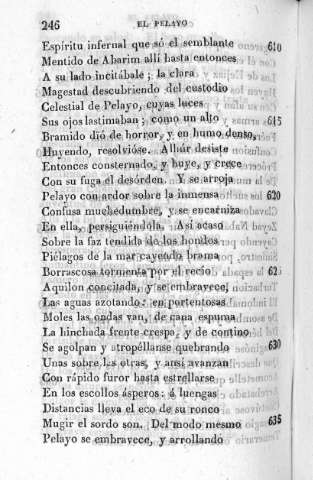 246 EL PELAYO
Espíritu infernal que só el semblante 610
Mentido de Abarim allí hasta entonces
A su lado incitábale; la clara
Magestad descubriendo del custodio
Celestial de Pelayo, cuyas luces
Sus ojos lastimaban; como un alto 615
Bramido dió de horror, y en humo denso,
Huyendo, resolvióse. Alhúr desiste
Entonces consternado, y huye, y crece
Con su fuga el desórden. Y se arroja
Pelayo con ardor sobre la inmensa 620
Confusa muchedumbre, y se encarniza
En ella, persiguiéndola. Así acaso
Sobre la faz tendida de los hondos
Piélagos de la mar cayendo brama
Borrascosa tormenta por el recio 62
Aquilon concitada, y se embravece,
Las aguas azotando: en portentosas
Moles las ondas van, de cana espuma
La hinchada frente crespa, y de contino
Se agolpan y atropéllanse quebrando 630
Unas sobre las otras, y ansí avanzan
Con rápido furor hasta estrellarse
En los escollos ásperos: á luengas
Distancias lleva el eco de su ronco
Mugir el sordo son. Del modo mesmo 635
Pelayo se embravece, y arrollando